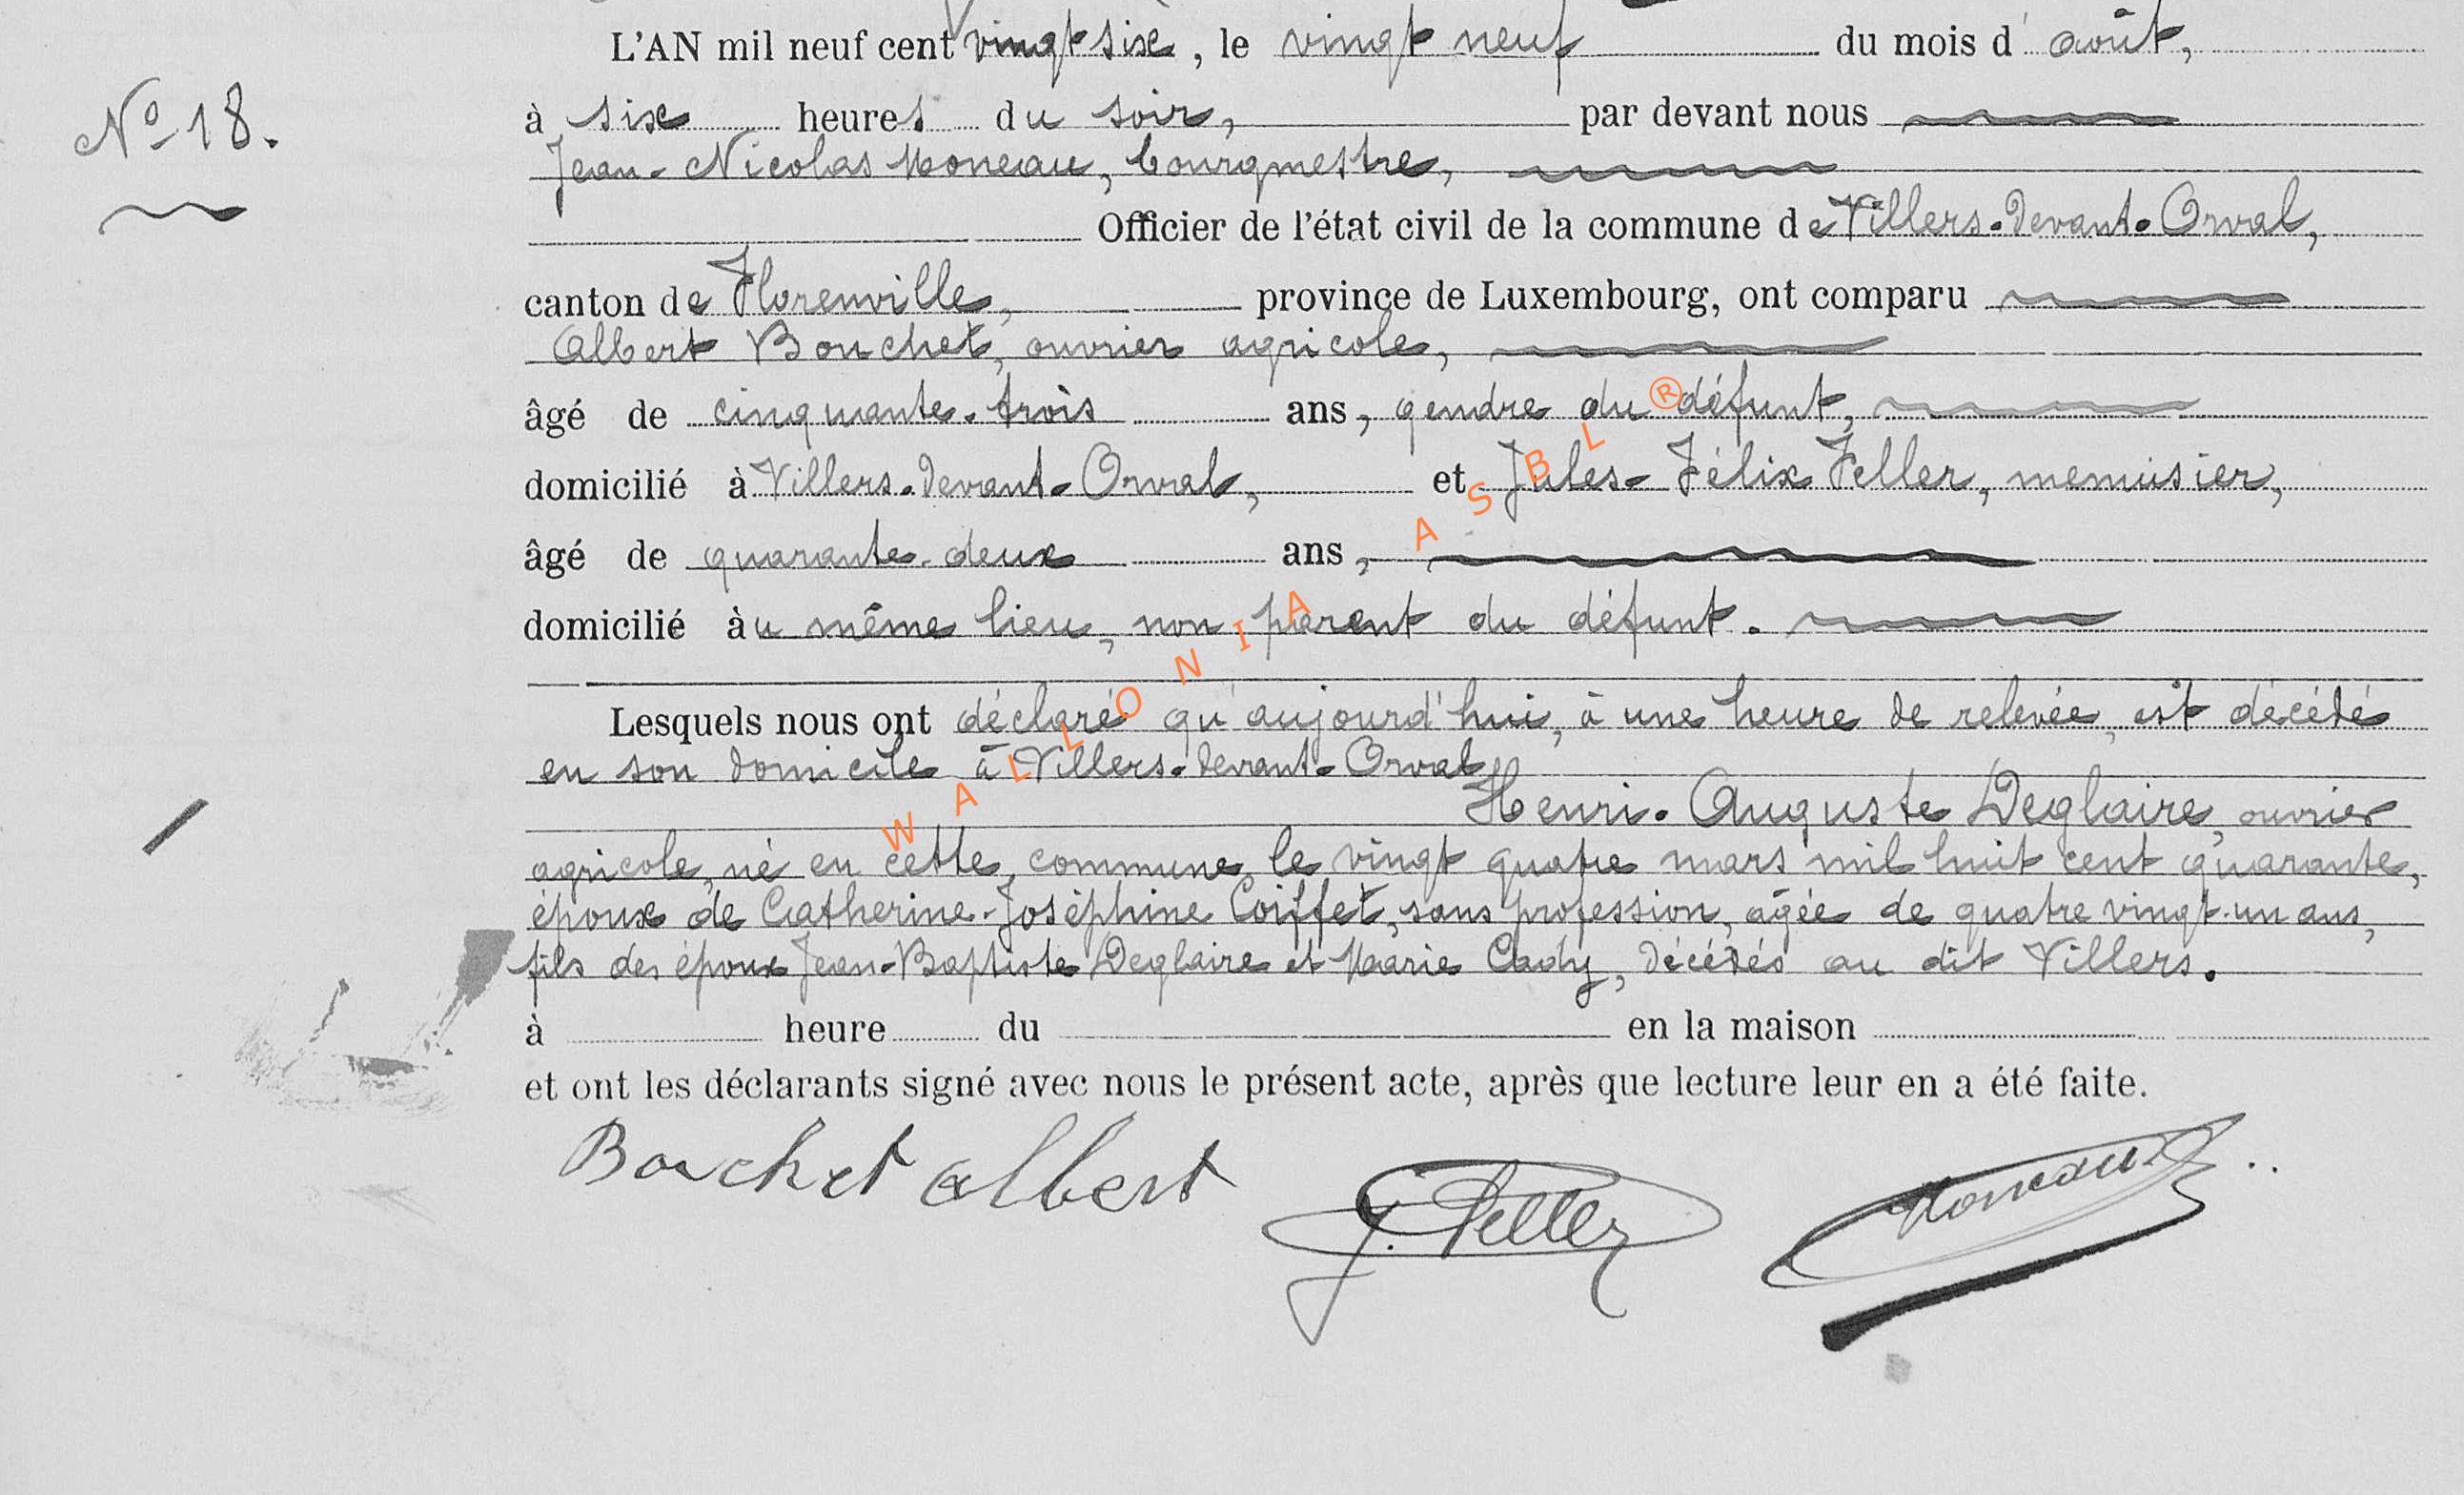 L'AN mil neuf cent vingt six, le vingt neuf du mois d'août,
N° 18.
à six heures du soir, par devant nous
Jean-Nicolas Moneau, bourgmestre,
Officier de l'état civil de la commune de Villers-devant-Orval,
canton de Florenville, province de Luxembourg, ont comparu
Albert Bouchet, ouvrier agricole,
âgé de cinquante-trois ans, gendre du défunt,
domicilié à Villers-devant-Orval, et Jules-Félix Feller, menuisier,
âgé de quarante-deux ans,
domicilié au même lieu, non parent du défunt.
Lesquels nous ont déclaré qu'aujourd'hui, à une heure de relevée, est décédé
en son domicile à Villers-devant-Orval
Henri-Auguste Deglaire, ouvrier
agricole, né en cette commune le vingt quatre mars mil huit cent quarante,
époux de Catherine-Joséphine Coiffet, sans profession, âgée de quatre vingt-un ans,
fils des époux Jean-Baptiste Deglaire et Marie Cady, décédés au dit Villers.
à heure du en la maison
et ont les déclarants signé avec nous le présent acte, après que lecture leur en a été faite.
Bouchet Albert J. Feller Moneau
WALLONIA ASBL ®